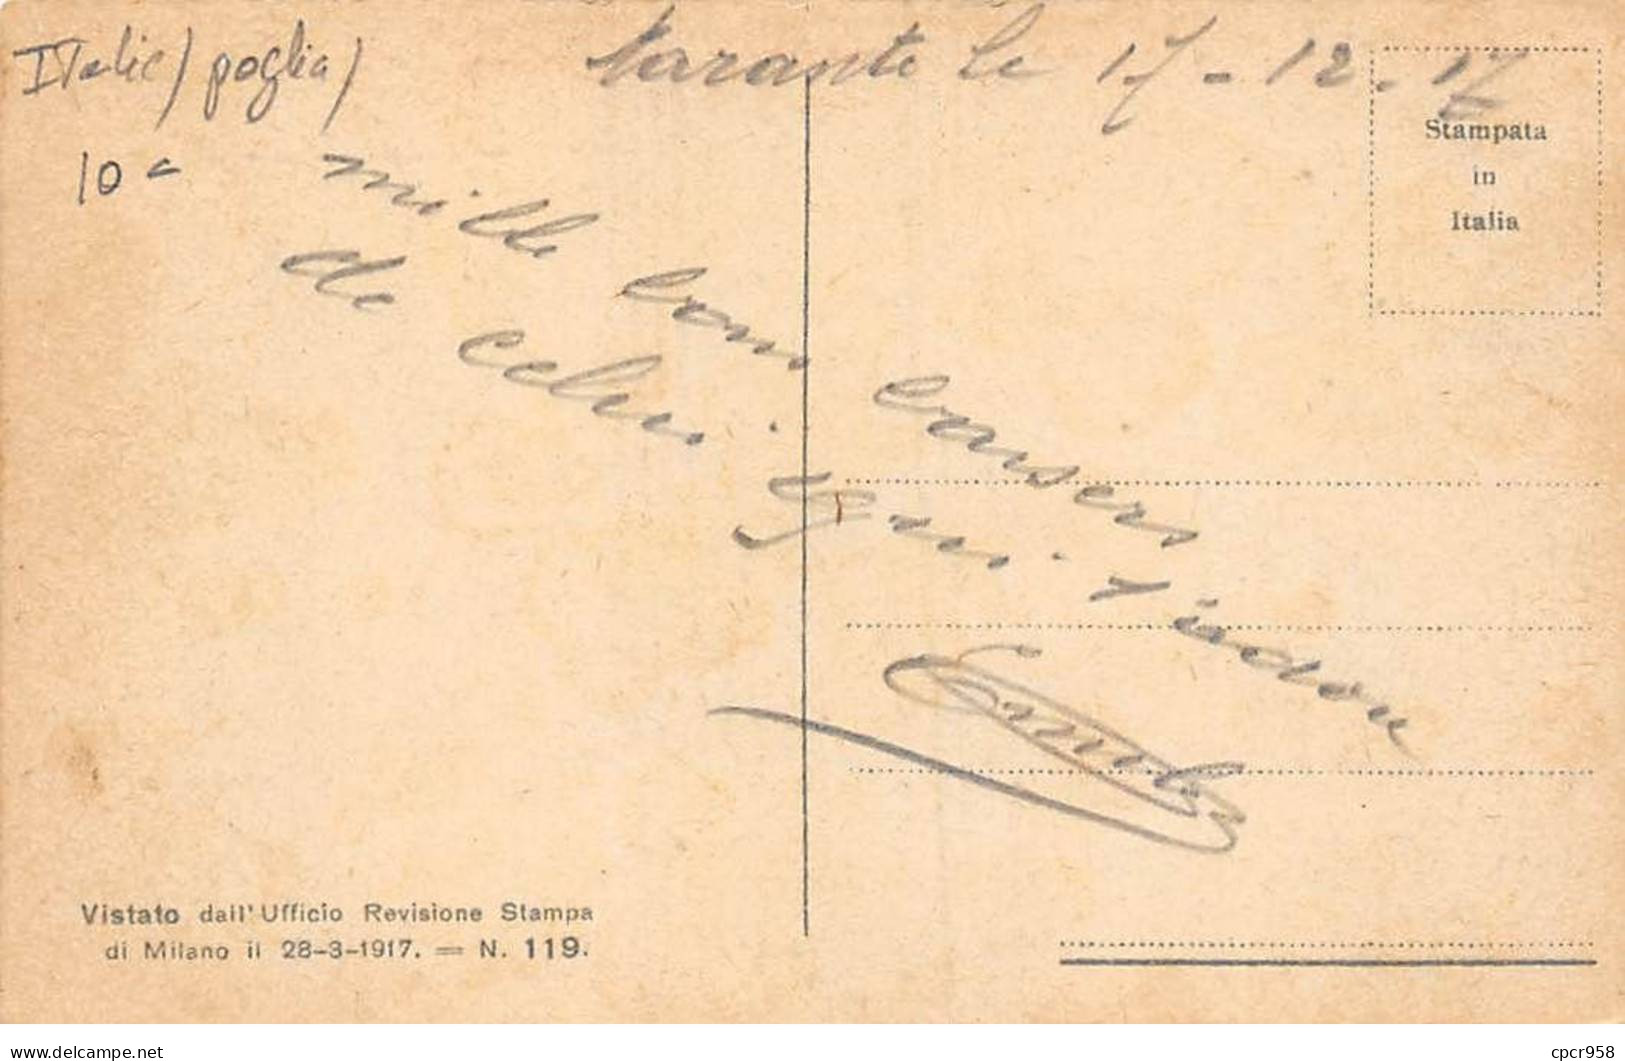 Italie) poglia)
Tarante le 17-12-17
10 €
Stampata
in
Italia
mille bons baisers
de celui qui t'adore
Vistato dall'Ufficio Revisione Stampa
di Milano il 28-3-1917. = N. 119.
delcampe.net
cpcr958